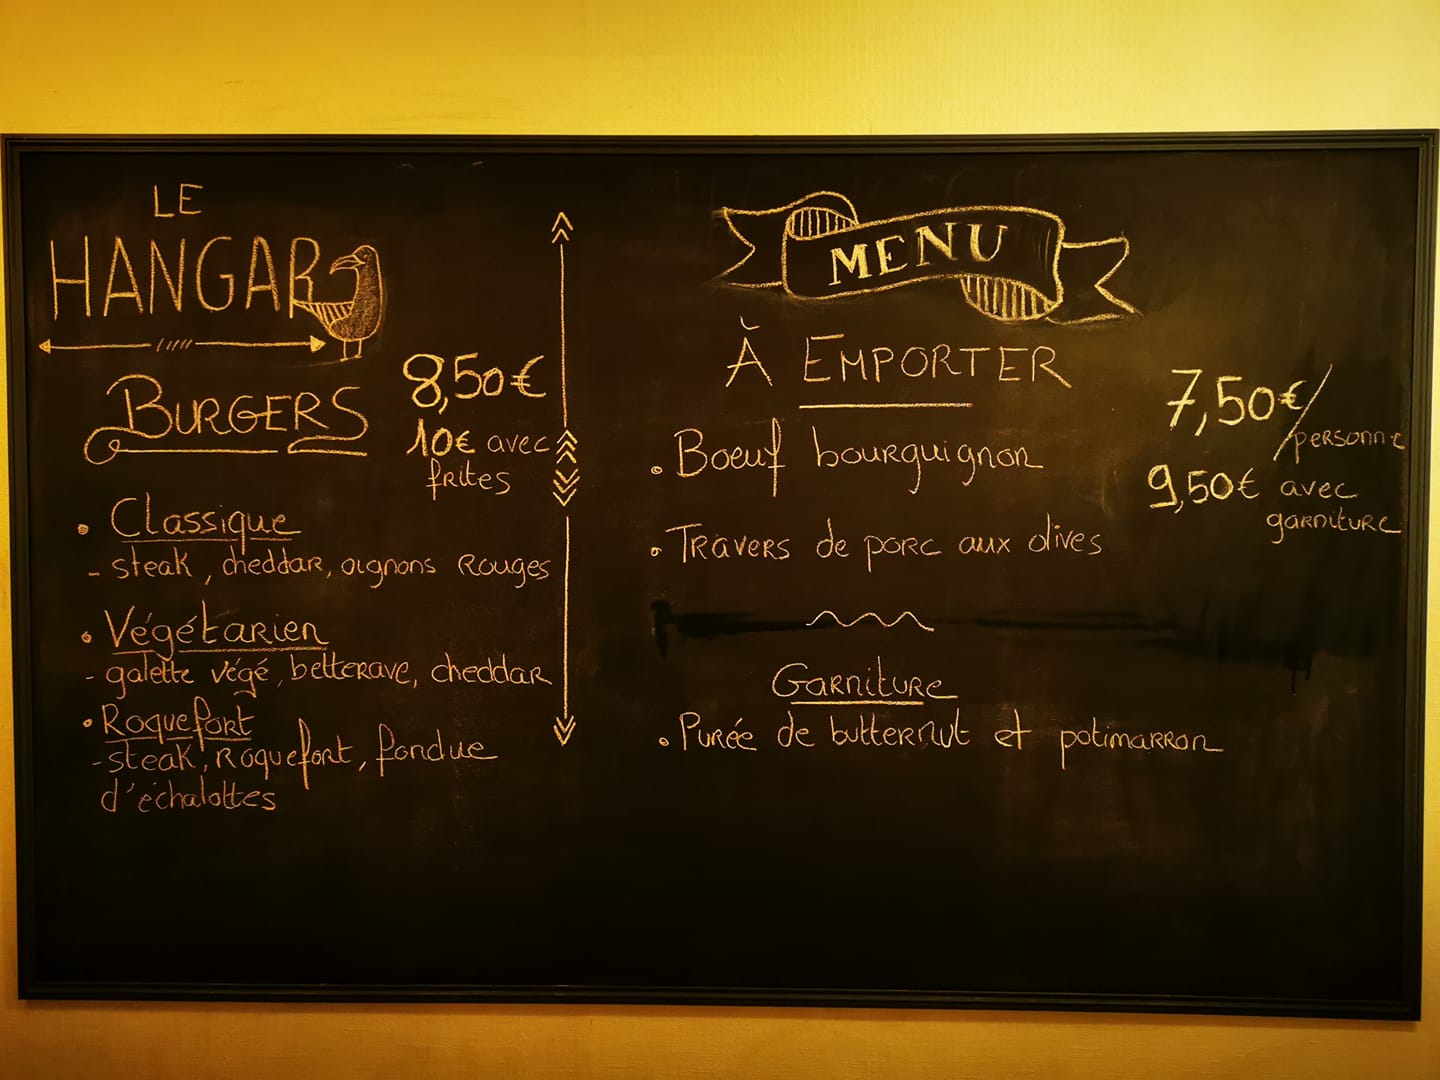 LE
HANGAR
BURGERS
8,50€
10€ avec
frites
• Classique
- steak, cheddar, oignons rouges
• Végétarien
- galette végé, betterave, cheddar
• Roquefort
- steak, roquefort, fondue
d'échalottes
MENU
À EMPORTER
7,50€/
personne
9,50€ avec
garniture
• Boeuf bourguignon
• Travers de porc aux olives
Garniture
• Purée de butternut et potimarron